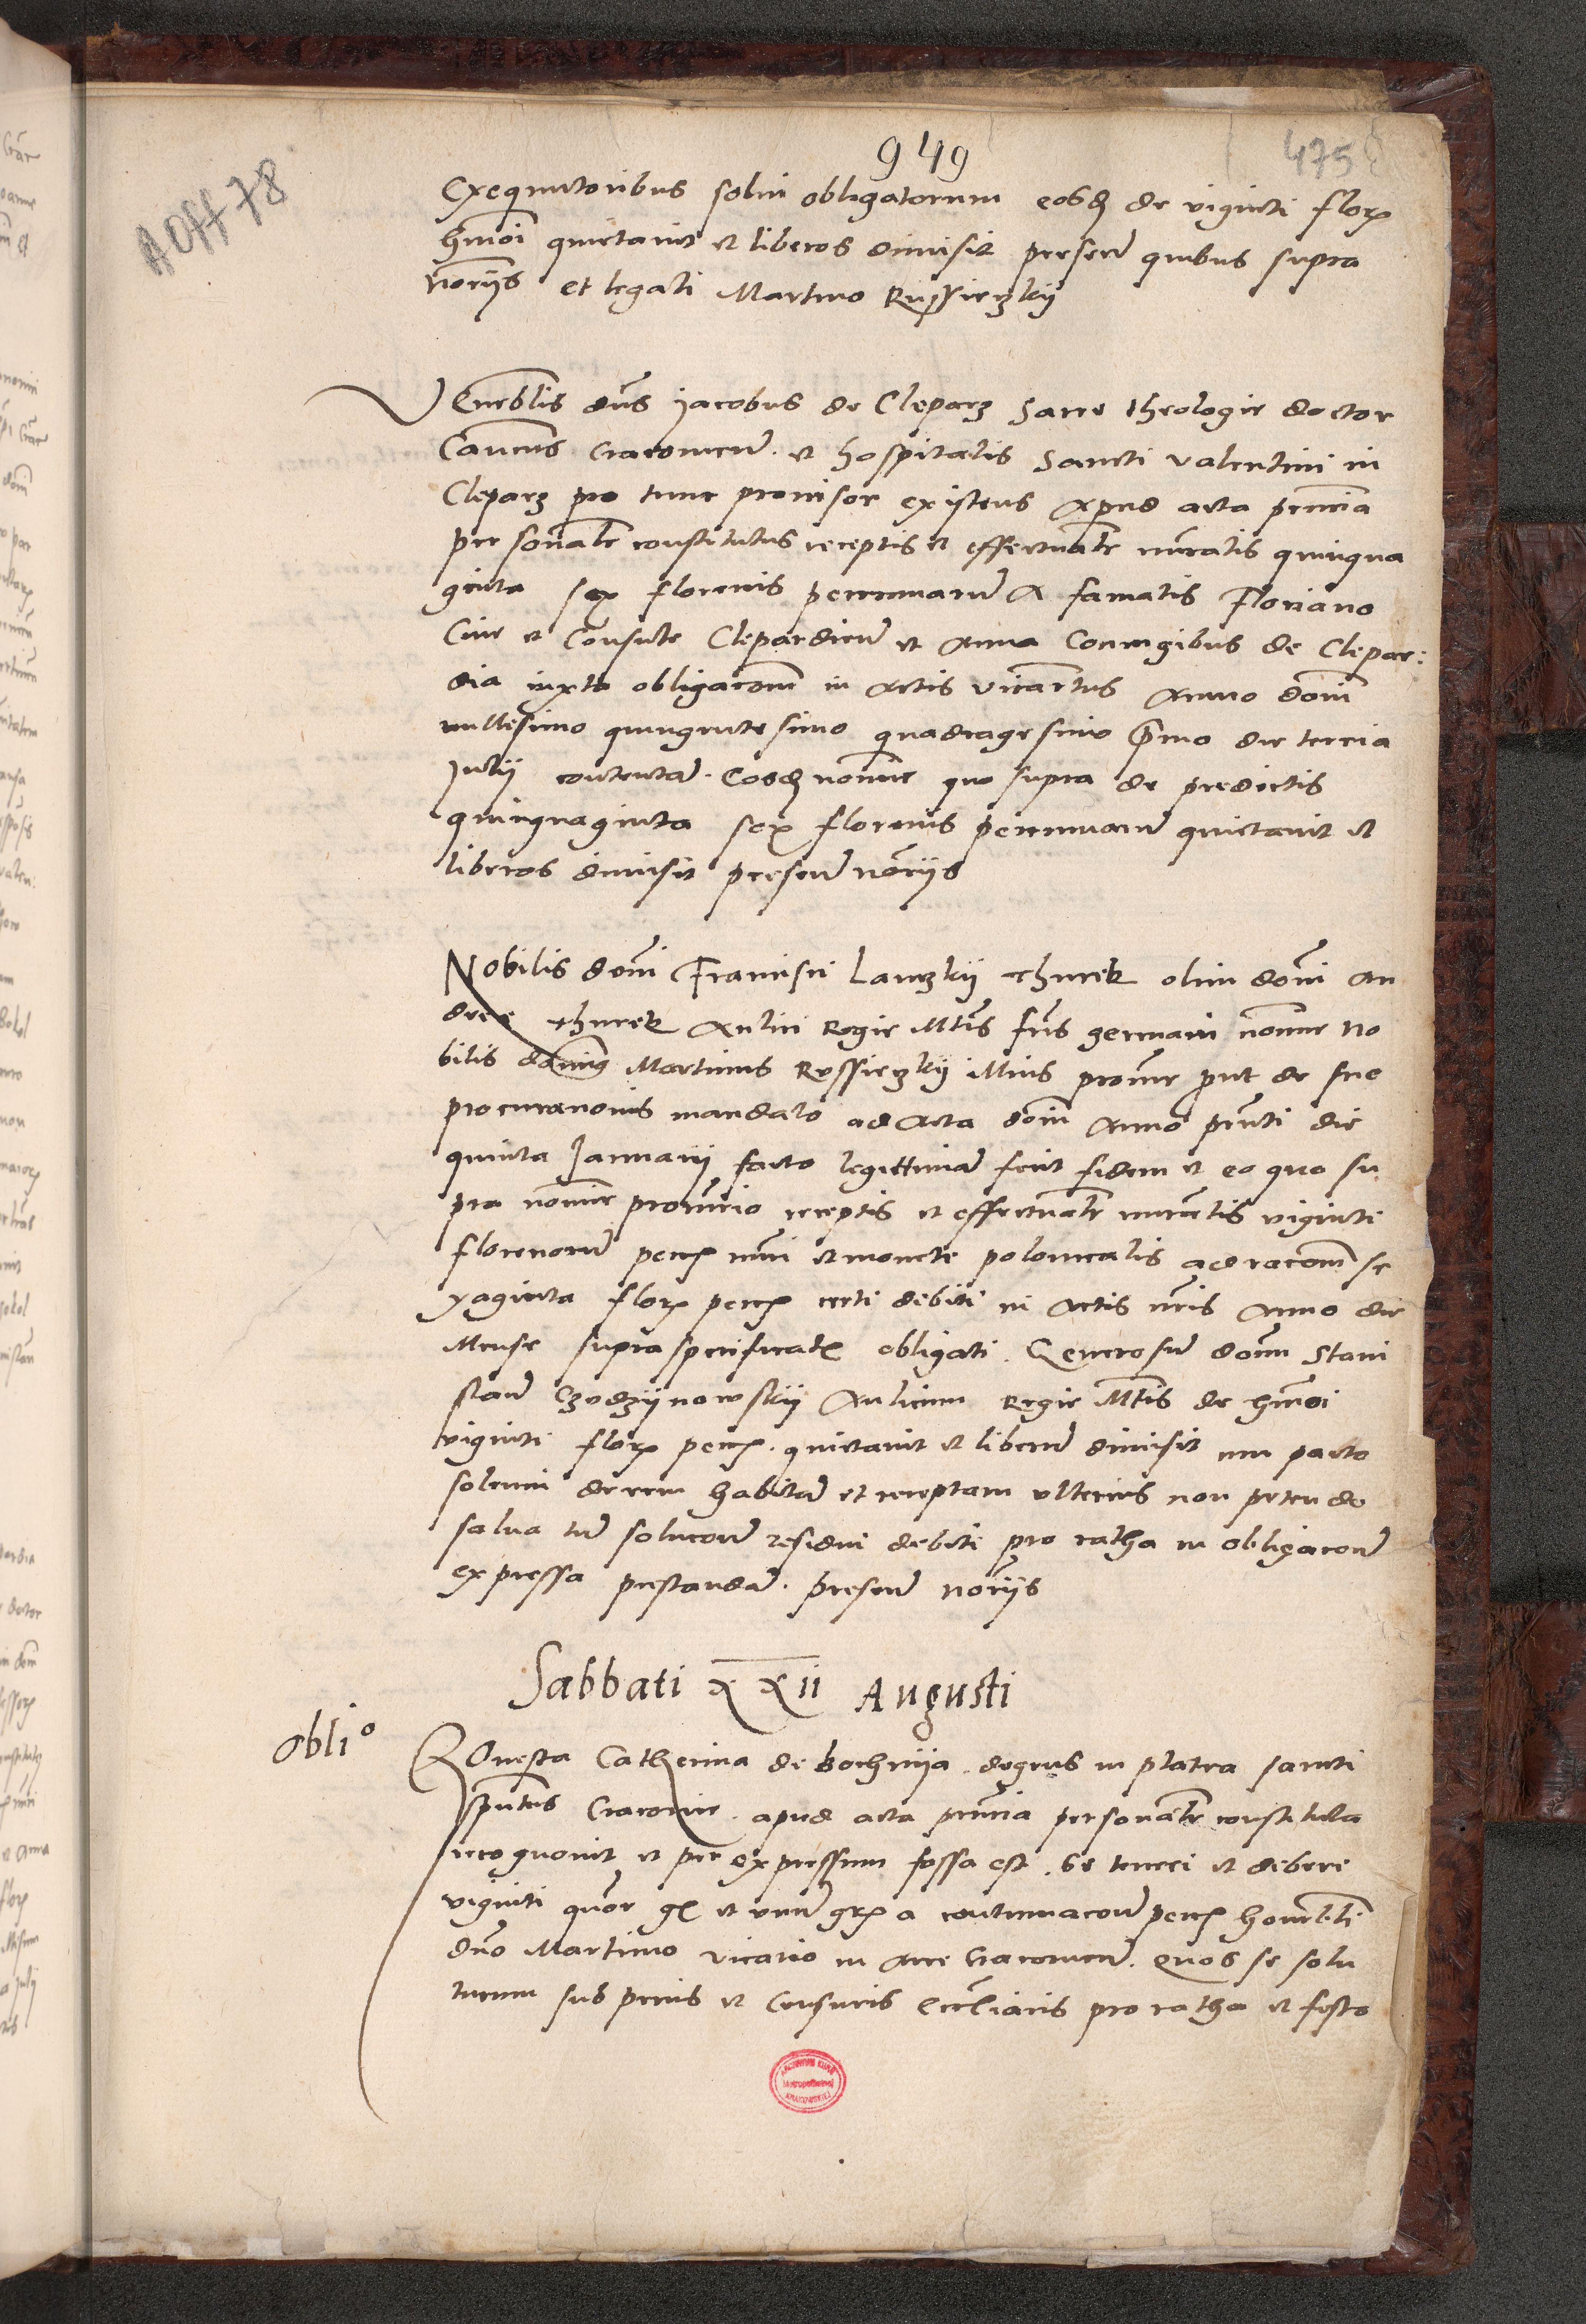 949
475
A Off 78
Exequutoribus solui obligatorum eosdem de viginti flor
hmoi quietauit et liberos dimisit presen quibus supra
norijs et legali Martino Russieczkij
Venerblis dns Jacobus de Cleparz Sacre theologie doctor
Canicus Cracouien. et hospitalis Sancti valentini in
Cleparz pro tunc prouisor existens apud acta prncia
personalr constitutus receptis et effectualr numeratis quinqua
ginta sex florenis pecuniarum a famatis Floriano
Ciue et Consule Clepardien et Anna Coniugibus de Clepar:
dia iuxta obligacom in actis vicariatus Anno dom
millesimo quingentesimo quadragesimo Primo die tercia
Julij contentam. Eosdem nomine quo supra de predictis
quinquaginta sex florenis pecuniarum quietauit et
liberos dimisit presen norijs
Nobilis domi Francisci Lanczkij Thurek olim domi An
dree Thurek Aulici Regie Mtis fris germani nomine No
bilis dominus Martinus Russieczkij illius procur prut de sue
procuracionis mandato ad Acta dom Anno prnti die
quinta Januarij facto legittimam fecit fidem et eo quo su
pra nomine procurio receptis et effectualr numeratis viginti
florenorum pecun numi et monete polonicalis ad racom se
xaginta flor pecun certi debiti in Actis nris Anno die
Mense supra specificatis obligati. Generosum dom Stani
slaum Czedzijnowskij Aulicum Regie Mtis de hmoi
viginti flor pecun. quietauit et liberum dimisit cum pacto
solenni de rem habitam et receptam vlterius non petendo
salua tn solucone residui debiti pro ratha in obligacone
expressa prestandam. presen norijs
Sabbati XXII Augusti
obli°
Honesta Catherina de Bochnija degens in platea sancti
spiritus Cracouie. apud acta prncia personalr constituta
recognouit et per expressum fassa est. se teneri et debere
viginti quatuor gr et vnum gr a continuacone pecun honorbli
dno Martino vicario in Arce Cracouien. quos se solu
turum sub penis et Censuris Ecclesiacis pro ratha et festo